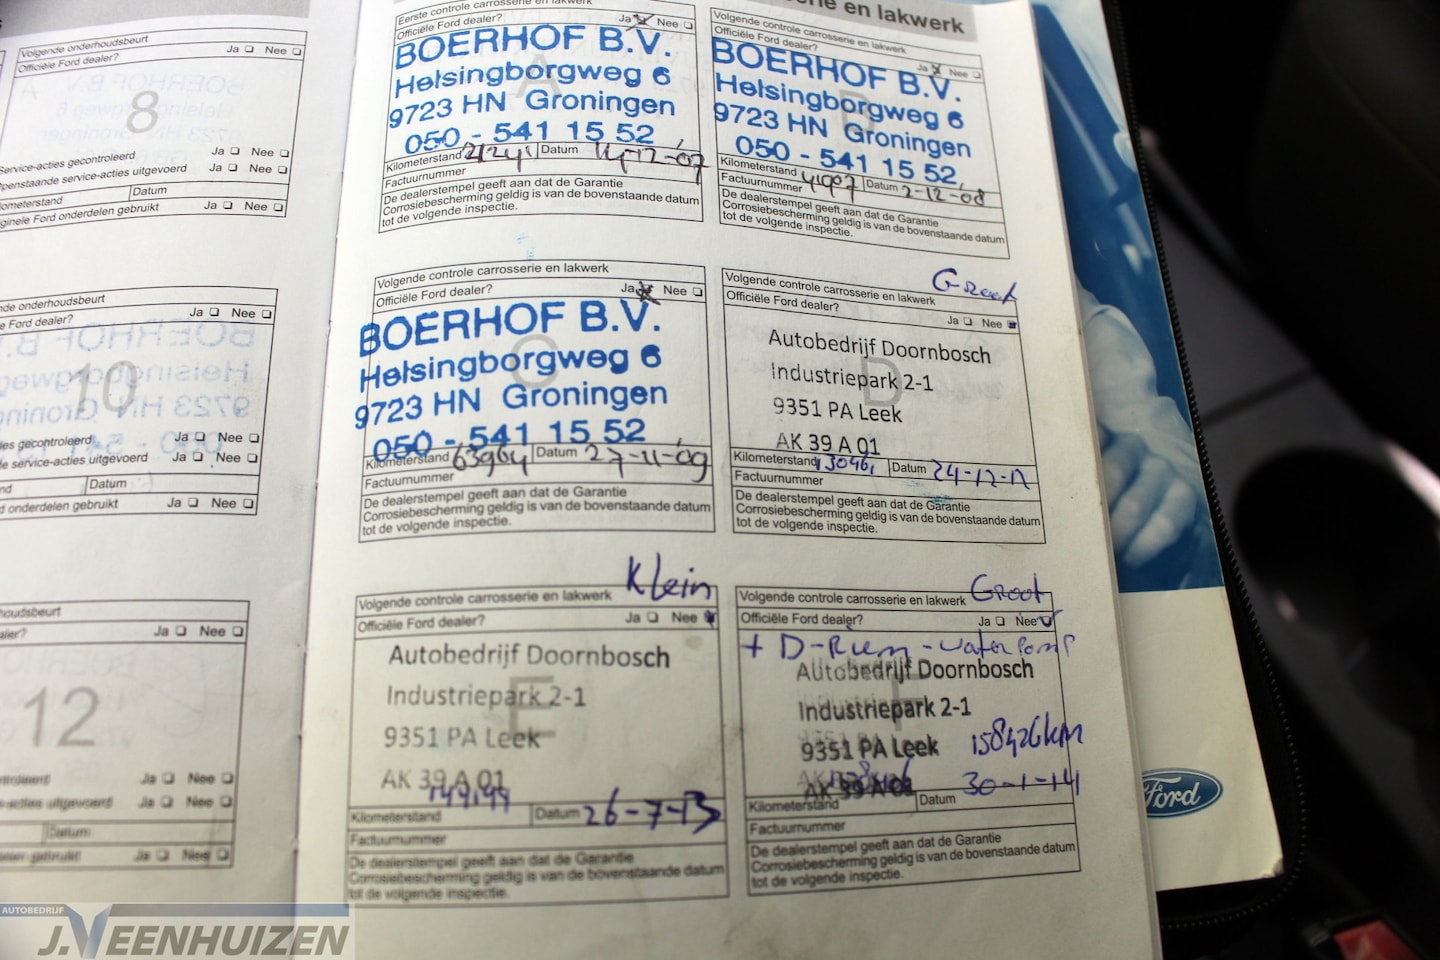 Volgende onderhoudsbeurt
Officiële Ford dealer?
Ja Nee
8
Service-acties gecontroleerd
Ja Nee
Ja Nee
Datum
Ford onderdelen gebruikt
Ja Nee
onderhoudsbeurt
Ford dealer?
Ja Nee
10
gecontroleerd
Ja Nee
service-acties uitgevoerd
Ja Nee
Datum
onderdelen gebruikt
Ja Nee
Ja Nee
12
Ja Nee
Ja Nee
Datum
Ja Nee
en lakwerk
Eerste controle carrosserie en lakwerk
Officiële Ford dealer?
Ja Nee
A
BOERHOF B.V.
Helsingborgweg 6
9723 HN Groningen
050 - 541 15 52
Kilometerstand
Datum
Factuurnummer
De dealerstempel geeft aan dat de Garantie
Corrosiebescherming geldig is van bovenstaande datum
tot de volgende inspectie.
Volgende controle carrosserie en lakwerk
Officiële Ford dealer?
Ja Nee
BOERHOF B.V.
Helsingborgweg 6
9723 HN Groningen
050 - 541 15 52
Kilometerstand
Datum 2-12-08
Factuurnummer
De dealerstempel geeft aan dat de Garantie
Corrosiebescherming geldig is van de bovenstaande datum
tot de volgende inspectie.
Volgende controle carrosserie en lakwerk
Officiële Ford dealer?
Ja Nee
C
BOERHOF B.V.
Helsingborgweg 6
9723 HN Groningen
050 - 541 15 52
Kilometerstand 63964 Datum 27-11-09
Factuurnummer
De dealerstempel geeft aan dat de Garantie
Corrosiebescherming geldig is van de bovenstaande datum
tot de volgende inspectie.
Groot
Volgende controle carrosserie en lakwerk
Officiële Ford dealer?
Ja Nee
D
Autobedrijf Doornbosch
Industriepark 2-1
9351 PA Leek
AK 39 A 01
Kilometerstand
Datum 24-12-12
Factuurnummer
De dealerstempel geeft aan dat de Garantie
Corrosiebescherming geldig is van de bovenstaande datum
tot de volgende inspectie.
Klein
Volgende controle carrosserie en lakwerk
Officiële Ford dealer?
Ja Nee
E
Autobedrijf Doornbosch
Industriepark 2-1
9351 PA Leek
AK 39 A 01
Kilometerstand
Datum 26-7-13
Factuurnummer
De dealerstempel geeft aan dat de Garantie
Corrosiebescherming geldig is van de bovenstaande datum
tot de volgende inspectie.
Groot
Volgende controle carrosserie en lakwerk
Officiële Ford dealer?
Ja Nee
+ D-Riem - waterpomp
F
Autobedrijf Doornbosch
Industriepark 2-1
9351 PA Leek
158426km
AK 39 A 01
Kilometerstand
Datum 30-1-14
Factuurnummer
De dealerstempel geeft aan dat de Garantie
Corrosiebescherming geldig is van de bovenstaande datum
tot de volgende inspectie.
Ford
AUTOBEDRIJF
J.VEENHUIZEN